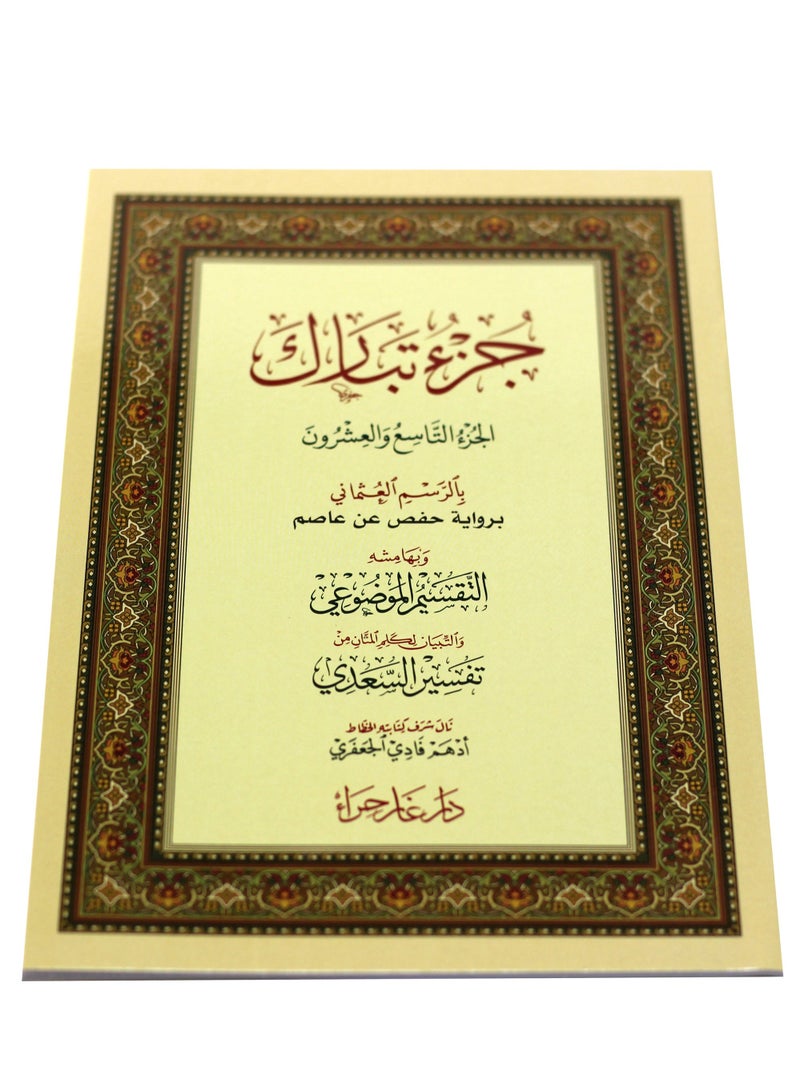 جُزْءُ تَبَارَكَ
الجُزْءُ التَّاسِعُ وَالعِشْرُونَ
بِٱلرَّسْمِ ٱلْعُثْمَانِي
برواية حفص عن عاصم
وَبِهَامِشِهِ
التَّقْسِيْمُ المَوْضُوْعِيْ
وَالتِّبْيَان لِكَلِمِ المَنَّانِ مِنْ
تَفْسِيْرِ السَّعْدِيْ
نَالَ شَرَفَ كِتَابَتِهِ الخَطَّاط
أَدْهَمْ فَادِيْ ٱلجَعْفَرِيْ
دَارُ غَارِ حِرَاءْ